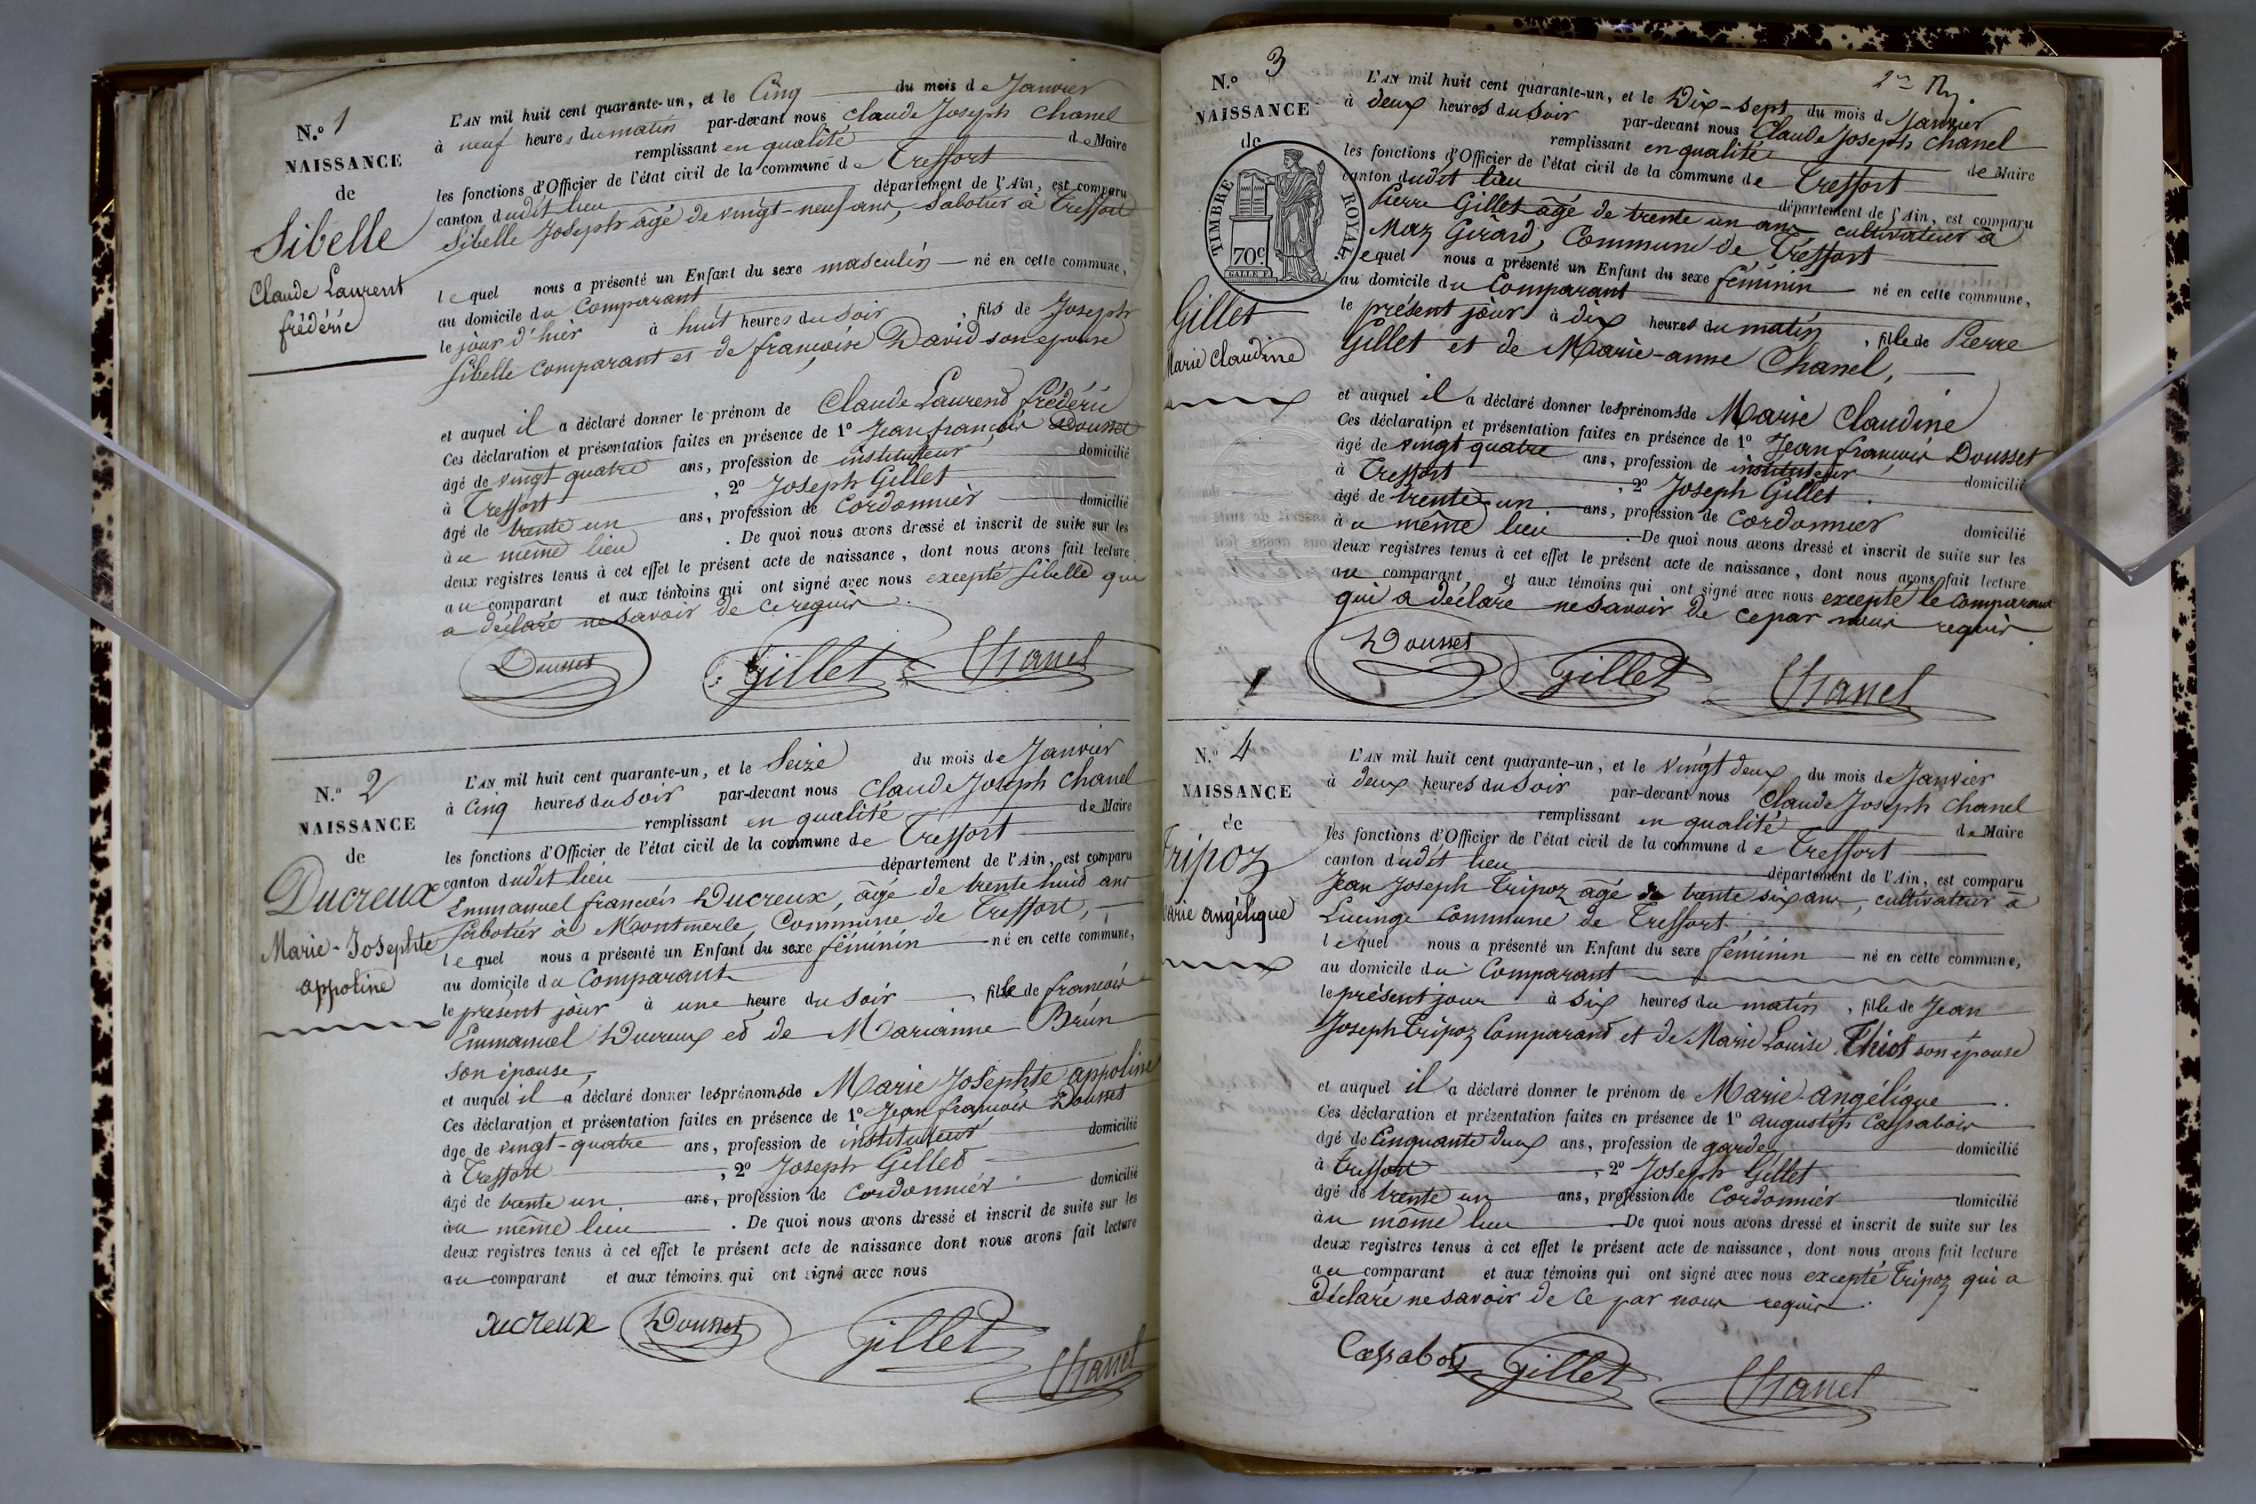 N.° 1
NAISSANCE
de
Sibelle
Claude Laurent
frédéric
L'AN mil huit cent quarante-un, et le Cinq du mois de Janvier
à neuf heures du matin par-devant nous Claude Joseph Chanel
remplissant en qualité de Maire
les fonctions d'Officier de l'état civil de la commune de Treffort
canton dudit lieu département de l'Ain, est comparu
Sibelle Joseph âgé de vingt-neuf ans, Sabotier à Treffort
lequel nous a présenté un Enfant du sexe masculin né en cette commune,
au domicile du Comparant
le jour d'hier à huit heures du soir, fils de Joseph
Sibelle comparant et de françoise David son epouse
et auquel il a déclaré donner le prénom de Claude Laurend frédéric
Ces déclaration et présentation faites en présence de 1° Jean françois Dousset
âgé de vingt quatre ans, profession de instituteur domicilié
à Treffort, 2° Joseph Gillet
âgé de trente un ans, profession de Cordonnier domicilié
au même lieu. De quoi nous avons dressé et inscrit de suite sur les
deux registres tenus à cet effet le présent acte de naissance, dont nous avons fait lecture
au comparant et aux témoins qui ont signé avec nous excepté Sibelle qui
a déclaré ne savoir de ce requis.
Dousset Gillet Chanel
N.° 2
NAISSANCE
de
Ducreux
Marie-Josephte
appoline
L'AN mil huit cent quarante-un, et le Seize du mois de Janvier
à Cinq heures du soir par-devant nous Claude Joseph Chanel
remplissant en qualité de Maire
les fonctions d'Officier de l'état civil de la commune de Treffort
canton dudit lieu département de l'Ain, est comparu
Emmanuel francois Ducreux, âgé de trente huid ans
Sabotier à Montmerle, Commune de Treffort,
lequel nous a présenté un Enfant du sexe féminin né en cette commune,
au domicile du Comparant
le présent jour à une heure du soir, fille de francois
Emmanuel Ducreux ed de Marianne Brün
son épouse,
et auquel il a déclaré donner les prénoms de Marie Josephte appoline
Ces déclaration et présentation faites en présence de 1° Jean françois Dousset
âge de vingt-quatre ans, profession de instituteur domicilié
à Treffort, 2° Joseph Gilled
âgé de trente un ans, profession de Cordonnier domicilié
au même lieu. De quoi nous avons dressé et inscrit de suite sur les
deux registres tenus à cet effet le présent acte de naissance dont nous avons fait lecture
au comparant et aux témoins qui ont signé avec nous
Ducreux Dousset Gillet Chanel
2me
N.° 3
NAISSANCE
de
TIMBRE ROYAL
70c
Gillet
Marie Claudine
L'AN mil huit cent quarante-un, et le Dix-sept du mois d Janvier
à deux heures du soir par-devant nous Claude Joseph Chanel
remplissant en qualité de Maire
les fonctions d'Officier de l'état civil de la commune de Treffort
canton dudit lieu département de l'Ain, est comparu
Pierre Gillet âgé de trente un ans cultivateur à
Maz Girard, Commune de Tréffort
lequel nous a présenté un Enfant du sexe féminin né en cette commune,
au domicile du Comparant
le présent jour à dix heures du matin, fille de Pierre
Gillet et de Marie-anne Chanel,
et auquel il a déclaré donner les prénoms de Marie Claudine
Ces déclaration et présentation faites en présence de 1° Jean françois Dousset
âgé de vingt quatre ans, profession de instituteur domicilié
à Treffort, 2° Joseph Gillet.
âgé de trente-un ans, profession de Cordonnier domicilié
au même lieu. De quoi nous avons dressé et inscrit de suite sur les
deux registres tenus à cet effet le présent acte de naissance, dont nous avons fait lecture
au comparant, et aux témoins qui ont signé avec nous excepté le comparant
qui a déclaré ne savoir de ce par nous requis.
Dousset Gillet Chanel
N.° 4
NAISSANCE
de
Tripoz
Marie angélique
L'AN mil huit cent quarante-un, et le vingt deux du mois de Janvier
à deux heures du soir par-devant nous Claude Joseph Chanel
remplissant en qualité de Maire
les fonctions d'Officier de l'état civil de la commune de Treffort
canton dudit lieu département de l'Ain, est comparu
Jean Joseph Tripoz âgé de trente six ans, cultivateur à
Lucinge Commune de Treffort,
lequel nous a présenté un Enfant du sexe féminin né en cette commune,
au domicile du Comparant
le présent jour à six heures du matin, fille de Jean
Joseph Tripoz Comparand et de Marie Louise Thiot son épouse
et auquel il a déclaré donner le prénom de Marie-angélique.
Ces déclaration et présentation faites en présence de 1° augustin Cassabois
âgé de Cinquante deux ans, profession de garde domicilié
à Treffort, 2° Joseph Gillet
âgé de trente un ans, profession de Cordonnier domicilié
au même lieu De quoi nous avons dressé et inscrit de suite sur les
deux registres tenus à cet effet le présent acte de naissance, dont nous avons fait lecture
au comparant et aux témoins qui ont signé avec nous excepté Tripoz qui a
déclaré ne savoir de ce par nous requis.
Cassabois Gillet Chanel